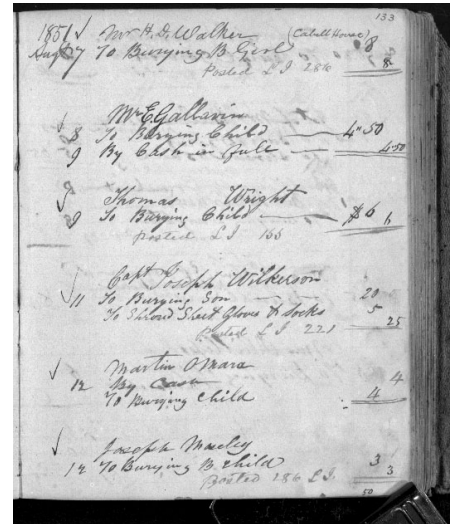 133
1851 √ Mr H. D. Walker (Cabell House)
Augt 7 To Burying B. Girl 8
Posted L J 286 8
√ Mr E. Gallavin
8 To Burying Child 4"50
9 By Cash in full 4.50
√ Thomas Wright
9 To Burying Child $6 6
posted L J 155
√ Capt Joseph Wilkerson
11 To Burying Son 20
To Shroud Sheet Gloves & Socks 5
Posted L J 221 25
√ Martin OMara
12 By Cash 4
To Burying Child 4
√ Joseph
12 To Burying B. Child 3
Posted 286 L J. 3
50